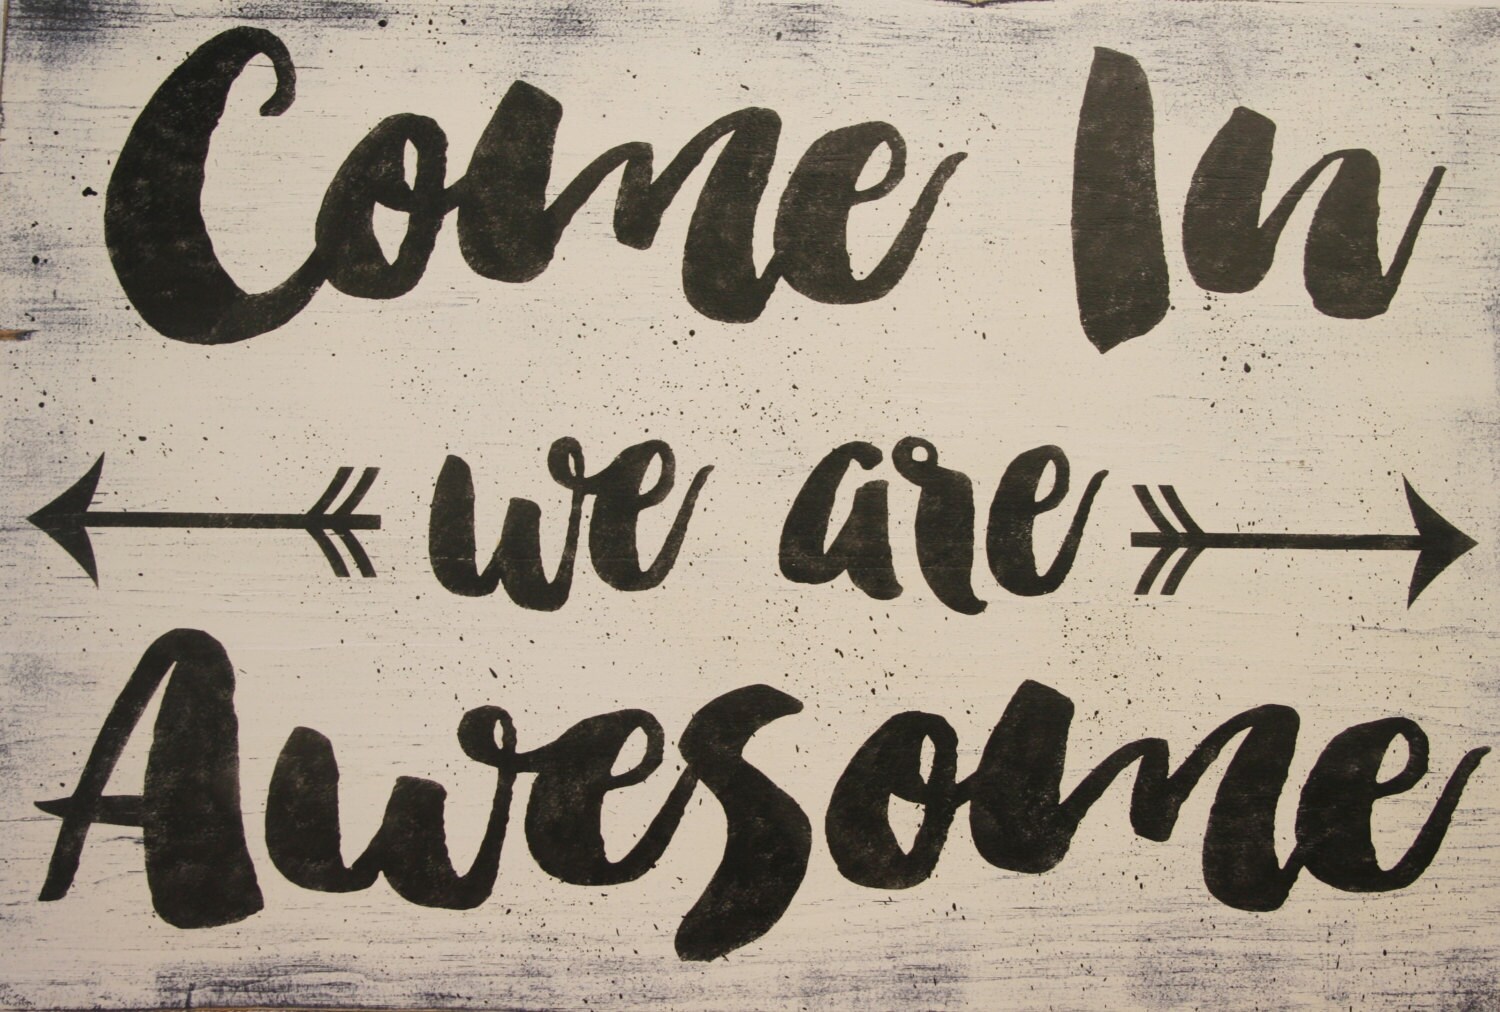 Come In
we are
Awesome